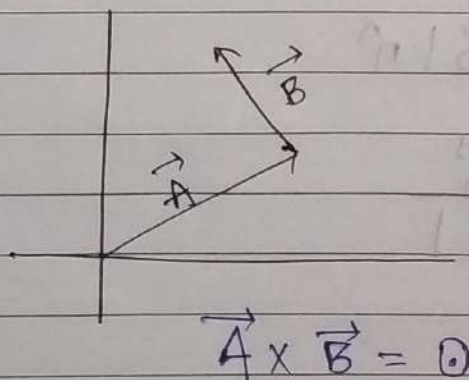 B⃗
A⃗
A⃗ × B⃗ = ⊙